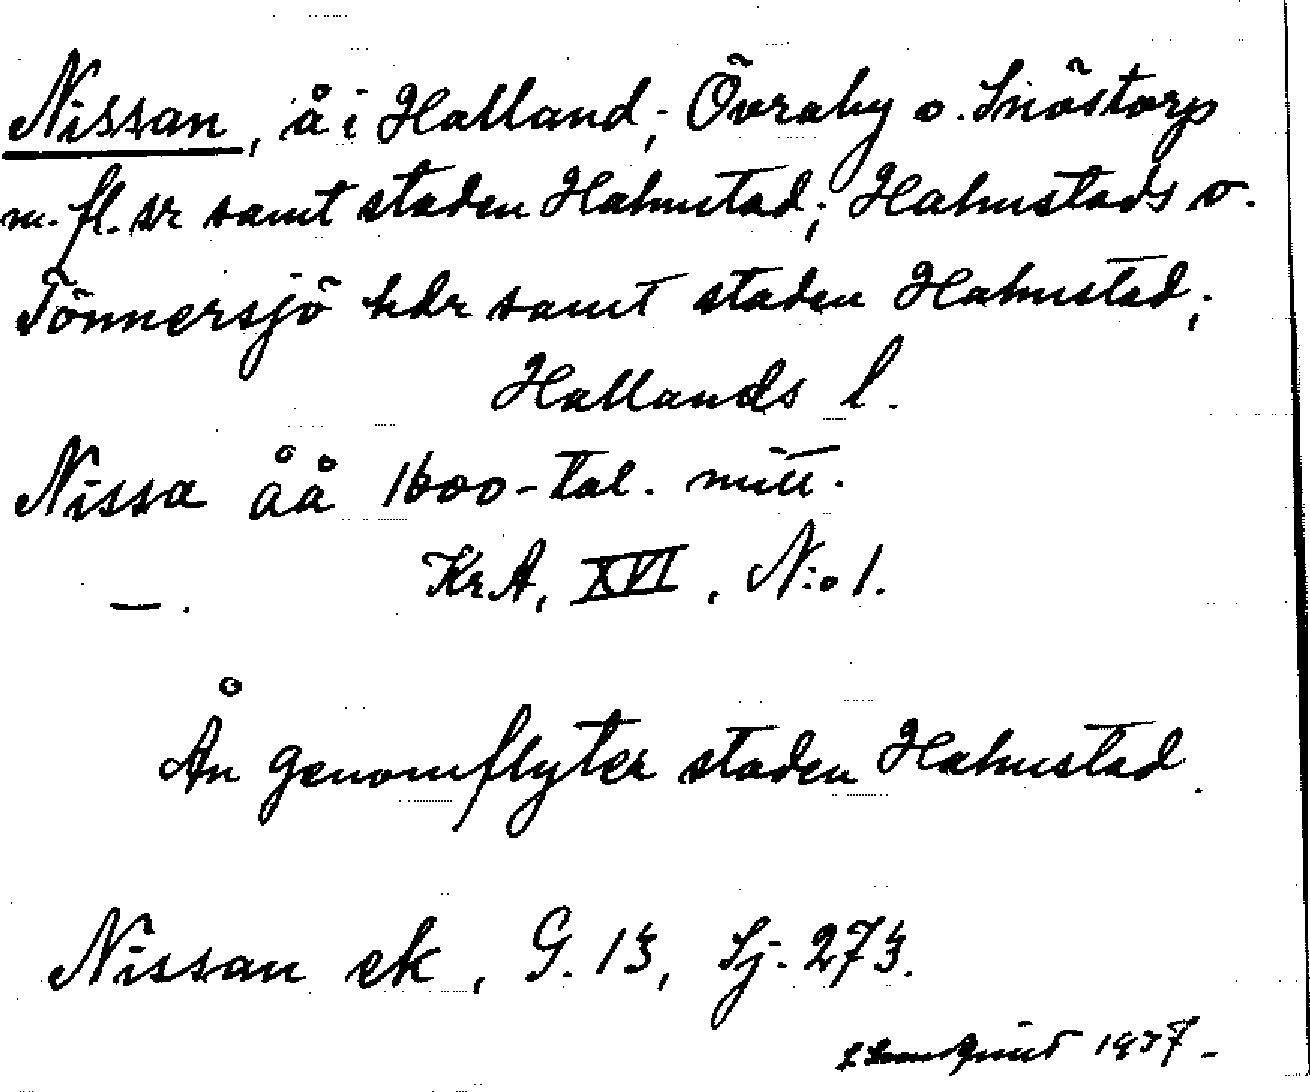 Nissan, å i Halland; Övraby o. Snöstorp
m. fl. sr samt staden Halmstad; Halmstads o.
Tönnersjö hdr samt staden Halmstad;
Hallands l.
Nissa åå 1600-tal. mitt.
Kr.A, XVI, N:o 1.
— .
Ån genomflyter staden Halmstad.
Nissan ek, G. 13, Sj. 273.
1937.-